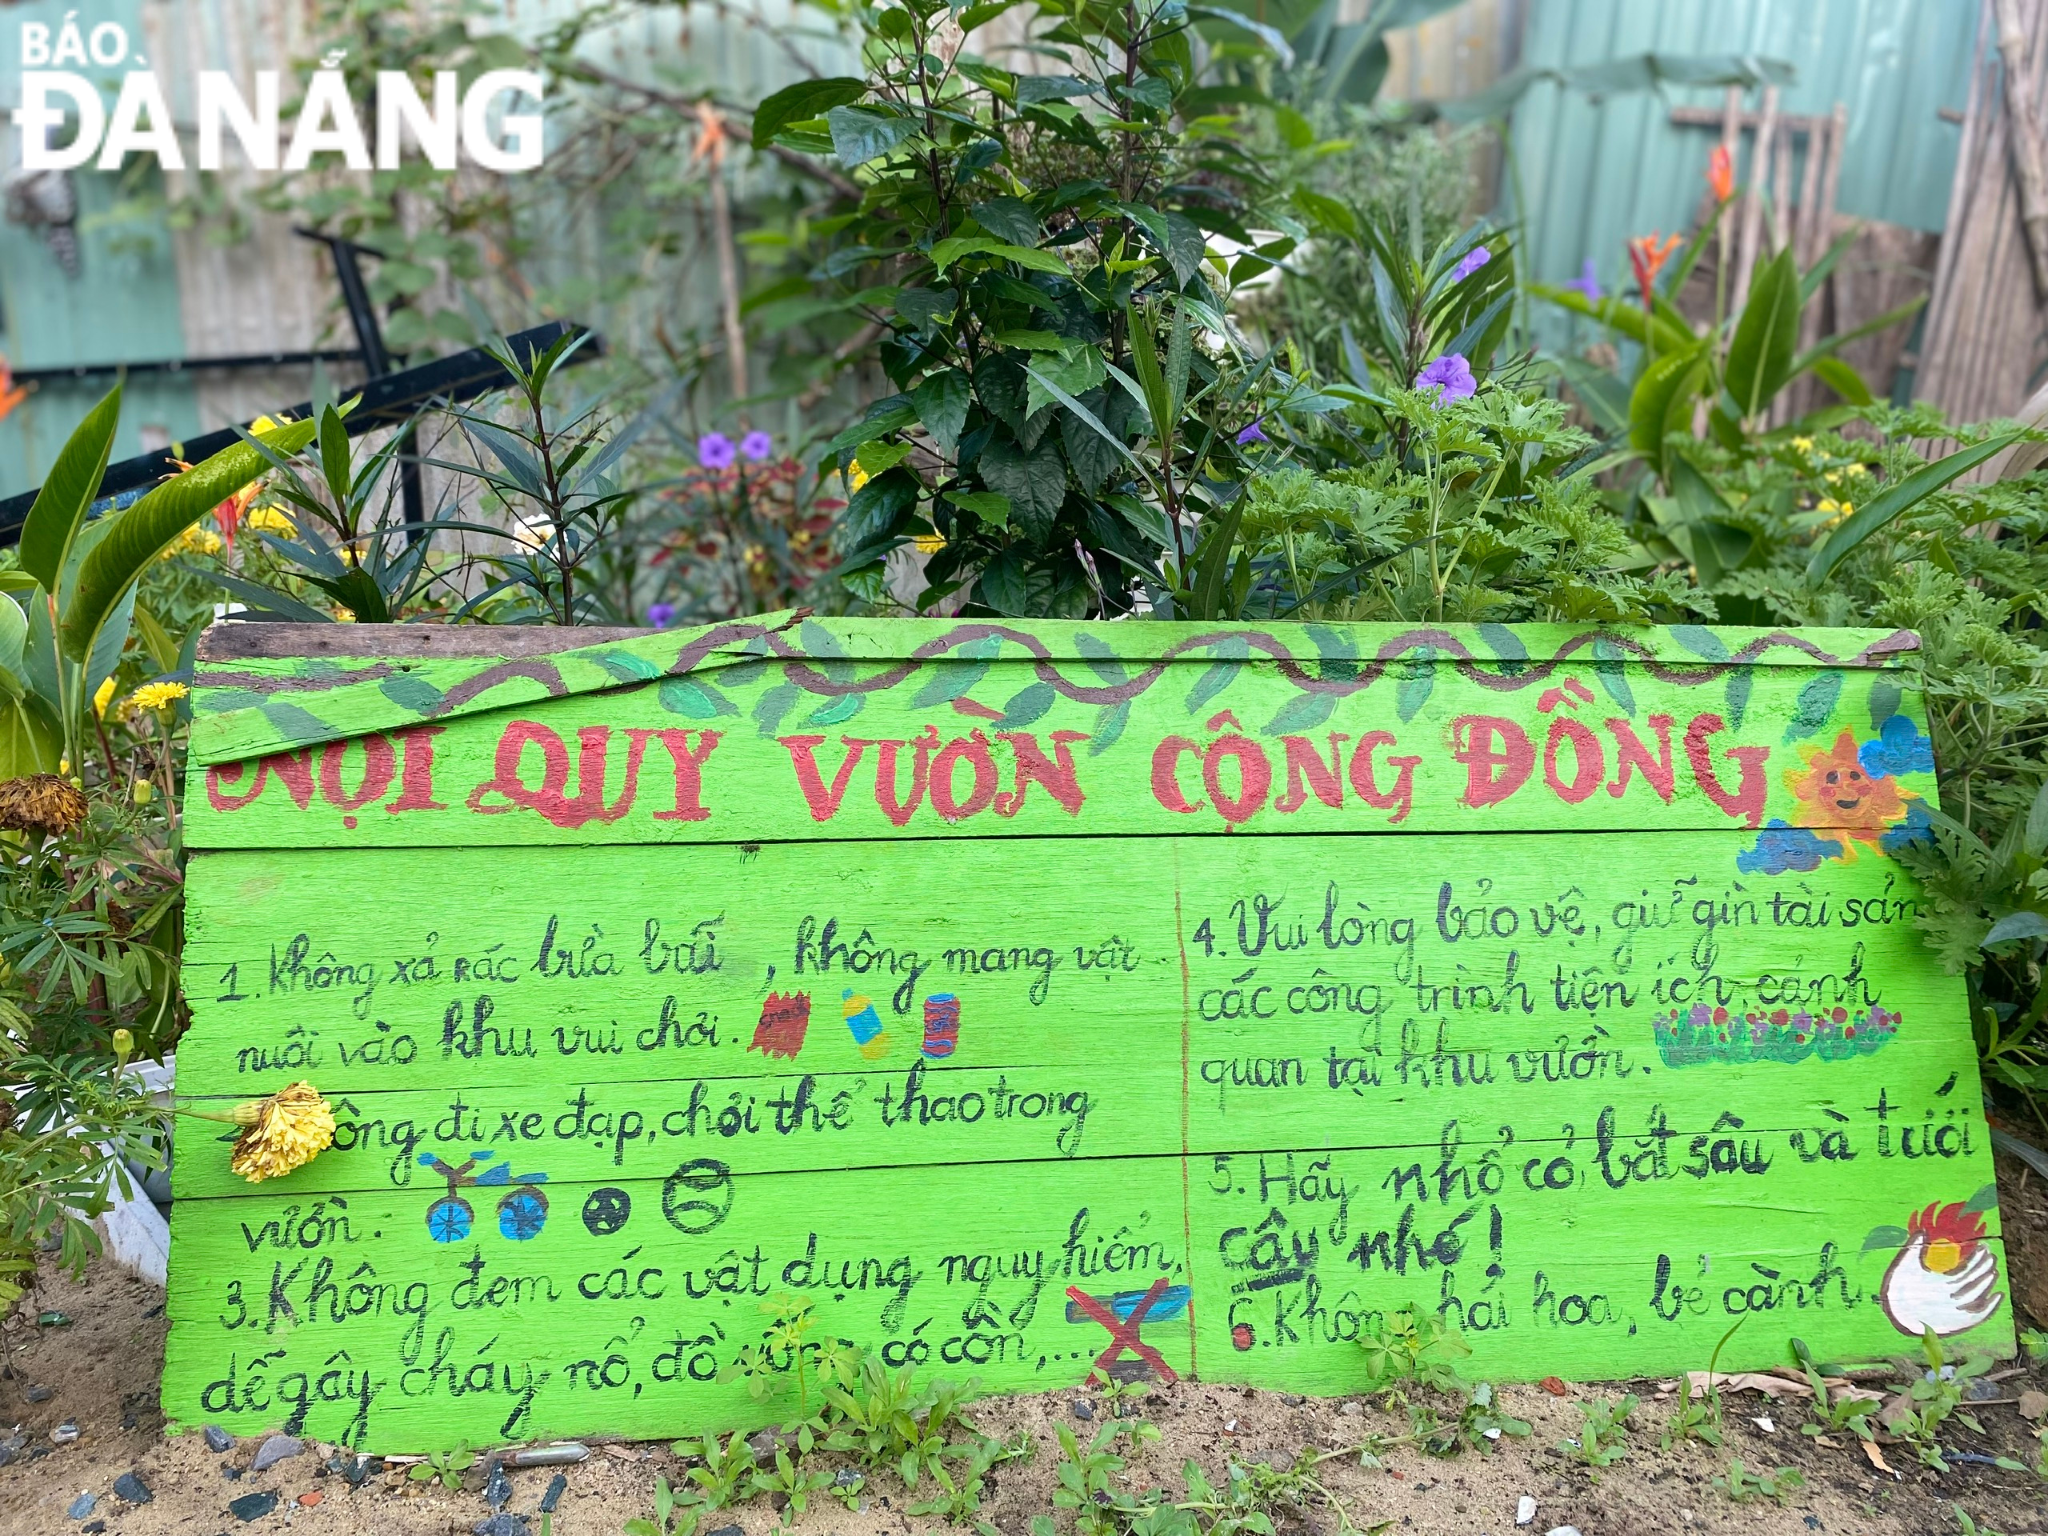 BÁO
ĐÀ NẴNG
NỘI QUY VƯỜN CỘNG ĐỒNG
1. Không xả rác bừa bãi, không mang vật
nuôi vào khu vui chơi.
đi xe đạp, chơi thể thao trong
vườn.
3. Không đem các vật dụng nguy hiểm,
dễ gây cháy nổ, đồ uống có cồn,...
4. Vui lòng bảo vệ, giữ gìn tài sản
các công trình tiện ích, cảnh
quan tại khu vườn.
5. Hãy nhổ cỏ, bắt sâu và tưới
cây nhé!
6. Không hái hoa, bẻ cành.